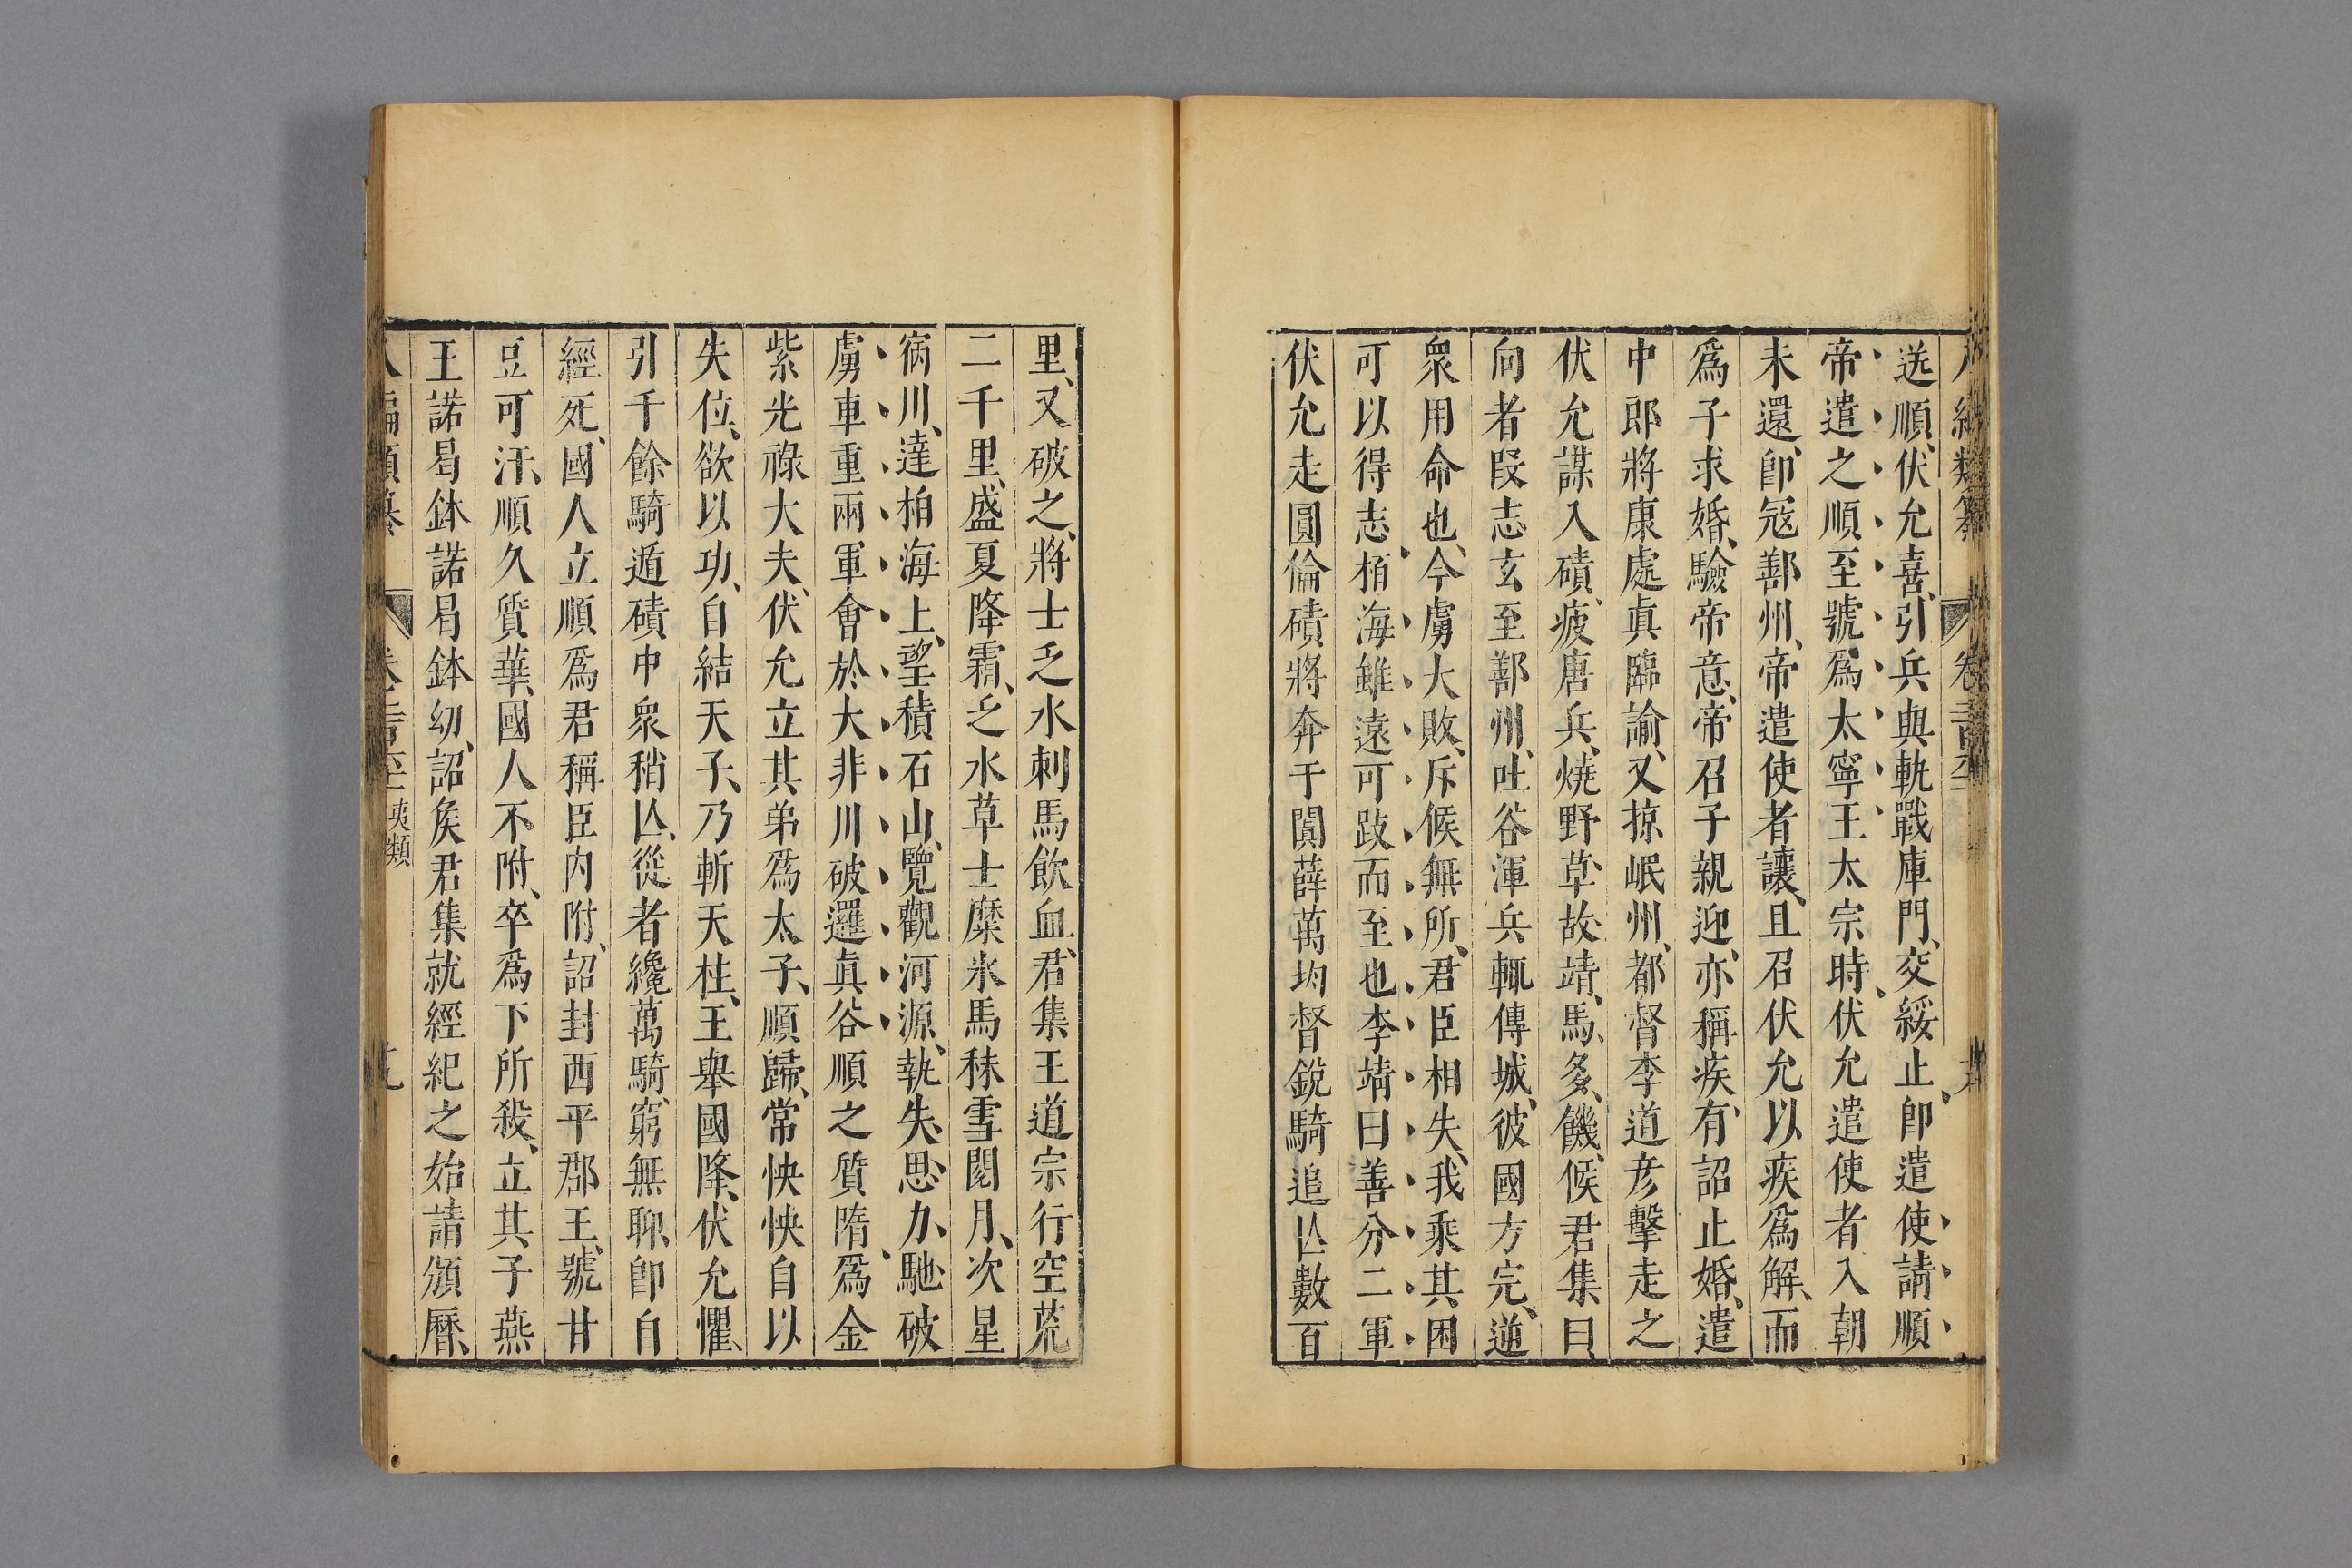 送順、伏允喜、引兵與軌戰庫門、交綏止、卽遣使請順
帝遣之順至號爲太寧王太宗時、伏允遣使者入朝
未還、卽寇鄯州、帝遣使者讓、且召伏允以疾爲解、而
爲子求婚、驗帝意、帝召子親迎、亦稱疾、有詔止婚、遣
中郎將康處眞臨諭、又掠岷州、都督李道彥擊走之
伏允謀入磧、疲唐兵、燒野草、故靖馬多饑、候君集曰、
向者段志玄至鄯州、吐谷渾兵輒傳城、彼國方完、逆
衆用命也、今虜大敗、斥候無所、君臣相失、我乘其困
可以得志、栢海雖遠可跂而至也李靖曰善分二軍
伏允走圓倫磧將奔于闐薛萬均督銳騎追亾數百
里、又破之、將士乏水刺馬飲血、君集王道宗行空荒
二千里、盛夏降霜、乏水草士糜氷馬秣雪閱月、次星
宿川、達柏海上、望積石山、覽觀河源、執失思力、馳破
虜車重兩軍會於大非川破邏眞谷順之質隋、爲金
紫光祿大夫、伏允立其弟爲太子、順歸、常怏怏自以
失位、欲以功、自結天子、乃斬天柱、王舉國降、伏允懼、
引千餘騎遁磧中衆稍亾、從者纔萬騎、窮無聊、卽自
經死、國人立順爲君稱臣内附、詔封西平郡王、號甘
豆可汗、順久質華、國人不附、卒爲下所殺、立其子燕
王諾曷鉢諾曷鉢幼、詔矦君集就經紀之始請頒曆、
八編類纂
夷類